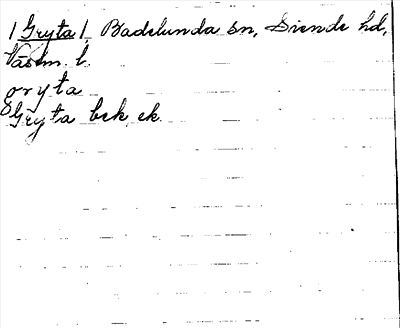 | Gryta | Badelunda sn, Siende hd,
Västm. l.
gryta
Gryta bek. ek.